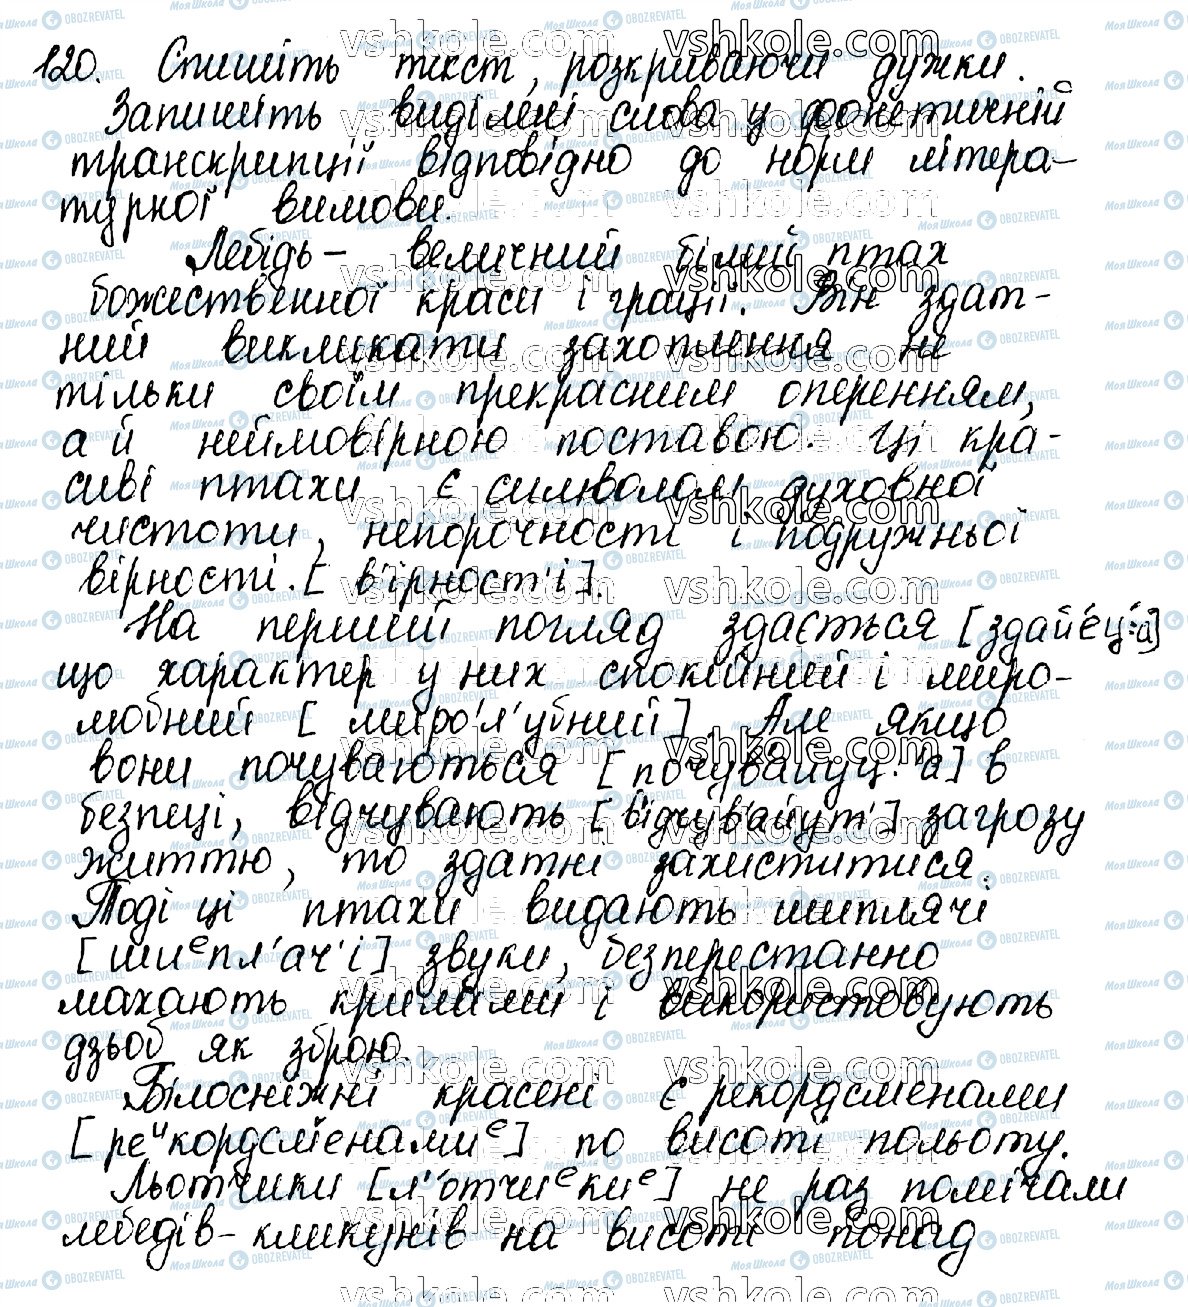 120. Спишіть текст, розкриваючи дужки.
Запишіть виділені слова у фонетичній
транскрипції відповідно до норм літера-
турної вимови.
Лебідь – величний білий птах
божественної краси і грації. Він здат-
ний викликати захоплення не
тільки своїм прекрасним оперенням,
а й неймовірною поставою. Ці кра-
сиві птахи є символом духовної
чистоти, непорочності і подружньої
вірності. [в'ірност'і].
На перший погляд здається [здайéц':а]
що характер у них спокійний і миро-
любний [миро'л'убний]. Але якщо
вони почуваються [почувайуц':а] в
безпеці, відчувають [в'ідчувайут'] загрозу
життю, то здатні захиститися.
Тоді ці птахи видають шиплячі
[шиᵉпл'ач'і] звуки, безперестанно
махають крилами і використовують
дзьоб як зброю.
Білосніжні красені є рекордсменами
[реᶦкордсменамиᵉ] по висоті польоту.
Льотчики [л'отчиᵉкиᵉ] не раз помічали
лебедів-кликунів на висоті понад